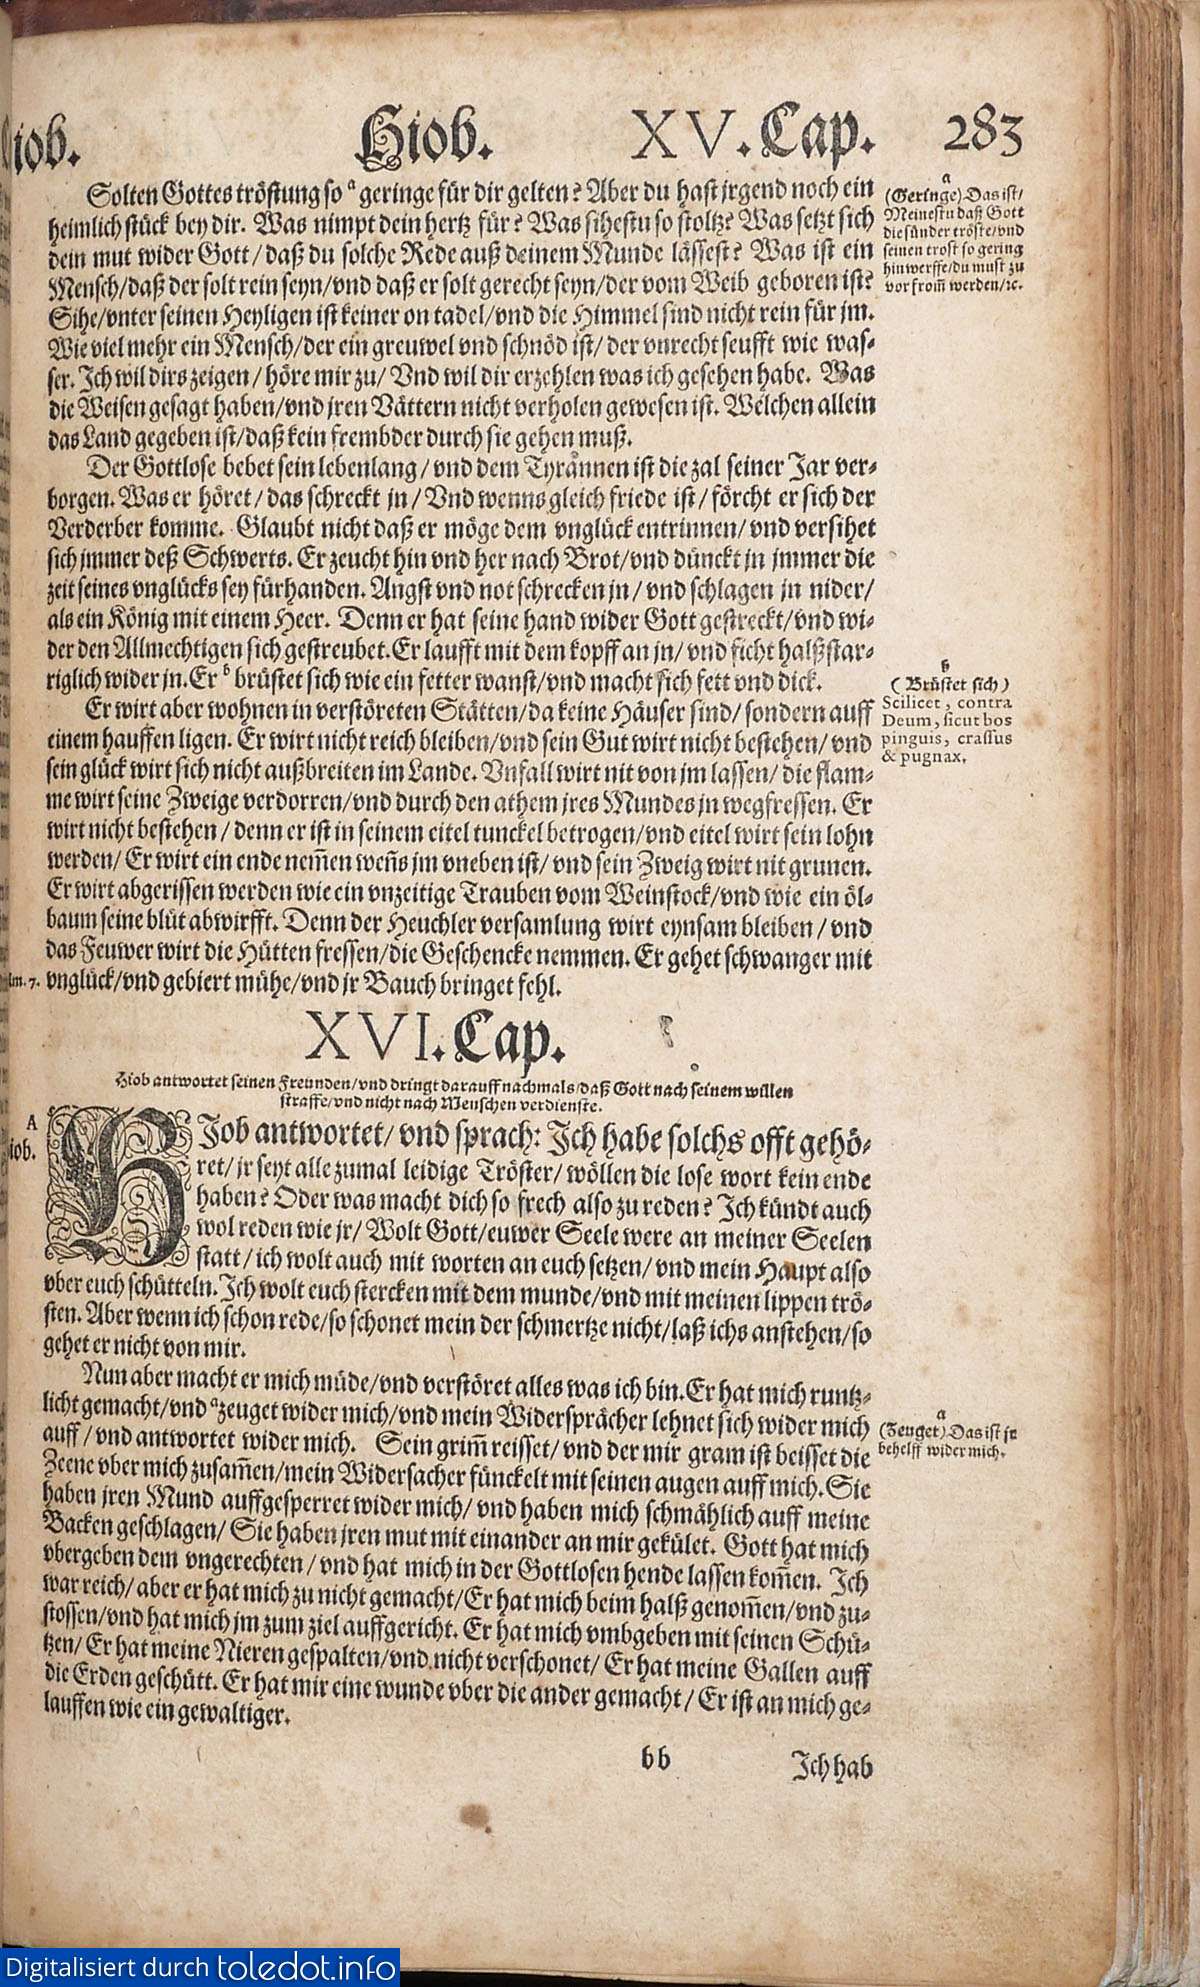 iob.
Hiob. XV. Cap. 283
Solten Gottes tröstung so a geringe für dir gelten? Aber du hast jrgend noch ein
heimlich stück bey dir. Was nimpt dein hertz für? Was sihestu so stoltz? Was setzt sich
dein mut wider Gott/ daß du solche Rede auß deinem Munde lässest? Was ist ein
Mensch/daß der solt rein seyn/vnd daß er solt gerecht seyn/der vom Weib geboren ist?
Sihe/vnter seinen Heyligen ist keiner on tadel/vnd die Himmel sind nicht rein für jm.
Wie viel mehr ein Mensch/der ein greuwel vnd schnöd ist/ der vnrecht seufft wie was-
ser. Ich wil dirs zeigen/ höre mir zu/ Vnd wil dir erzehlen was ich gesehen habe. Was
die Weisen gesagt haben/vnd jren Vättern nicht verholen gewesen ist. Welchen allein
das Land gegeben ist/daß kein frembder durch sie gehen muß.
Der Gottlose bebet sein lebenlang/ vnd dem Tyrannen ist die zal seiner Jar ver-
borgen. Was er höret/ das schreckt jn/ Vnd wenns gleich friede ist/ förcht er sich der
Verderber komme. Glaubt nicht daß er möge dem vnglück entrinnen/ vnd versihet
sich jmmer deß Schwerts. Er zeucht hin vnd her nach Brot/vnd dünckt jn jmmer die
zeit seines vnglücks sey fürhanden. Angst vnd not schrecken jn/ vnd schlagen jn nider/
als ein König mit einem Heer. Denn er hat seine hand wider Gott gestreckt/vnd wi-
der den Allmechtigen sich gestreubet. Er laufft mit dem kopff an jn/ vnd ficht halßstar-
riglich wider jn. Er b brüstet sich wie ein fetter wanst/vnd macht sich fett vnd dick.
Er wirt aber wohnen in verstöreten Stätten/da keine Häuser sind/ sondern auff
einem hauffen ligen. Er wirt nicht reich bleiben/vnd sein Gut wirt nicht bestehen/ vnd
sein glück wirt sich nicht außbreiten im Lande. Vnfall wirt nit von jm lassen/ die flam-
me wirt seine Zweige verdorren/vnd durch den athem jres Mundes jn wegfressen. Er
wirt nicht bestehen/ denn er ist in seinem eitel tunckel betrogen/vnd eitel wirt sein lohn
werden/ Er wirt ein ende nem̃en weñs jm vneben ist/ vnd sein Zweig wirt nit grunen.
Er wirt abgerissen werden wie ein vnzeitige Trauben vom Weinstock/vnd wie ein öl-
baum seine blüt abwirfft. Denn der Heuchler versamlung wirt eynsam bleiben/ vnd
das Feuwer wirt die Hütten fressen/die Geschencke nemmen. Er gehet schwanger mit
vnglück/vnd gebiert mühe/vnd jr Bauch bringet fehl.
a
(Geringe) Das ist/
Meinestu daß Gott
die sünder tröste/vnd
seinen trost so gering
hinwerffe/du must zu
vor from̃ werden/ꝛc.
b
(Brüstet sich)
Scilicet, contra
Deum, sicut bos
pinguis, crassus
& pugnax.
lm. 7.
XVI. Cap.
Hiob antwortet seinen Freunden/vnd dringt darauff nachmals/daß Gott nach seinem willen
straffe/vnd nicht nach Menschen verdienste.
A
iob.
HIob antwortet/ vnd sprach: Ich habe solchs offt gehö-
ret/ jr seyt alle zumal leidige Tröster/ wöllen die lose wort kein ende
haben? Oder was macht dich so frech also zu reden? Ich kündt auch
wol reden wie jr/ Wolt Gott/euwer Seele were an meiner Seelen
statt/ ich wolt auch mit worten an euch setzen/ vnd mein Haupt also
vber euch schütteln. Ich wolt euch stercken mit dem munde/vnd mit meinen lippen trö-
sten. Aber wenn ich schon rede/so schonet mein der schmertze nicht/laß ichs anstehen/so
gehet er nicht von mir.
Nun aber macht er mich müde/vnd verstöret alles was ich bin. Er hat mich runtz-
licht gemacht/vnd a zeuget wider mich/vnd mein Widersprächer lehnet sich wider mich
auff/ vnd antwortet wider mich. Sein grim̃ reisset/ vnd der mir gram ist beisset die
Zeene vber mich zusam̃en/mein Widersacher fünckelt mit seinen augen auff mich. Sie
haben jren Mund auffgesperret wider mich/ vnd haben mich schmählich auff meine
Backen geschlagen/ Sie haben jren mut mit einander an mir gekület. Gott hat mich
vbergeben dem vngerechten/ vnd hat mich in der Gottlosen hende lassen kom̃en. Ich
war reich/ aber er hat mich zu nicht gemacht/Er hat mich beim halß genom̃en/vnd zu-
stossen/vnd hat mich jm zum ziel auffgericht. Er hat mich vmbgeben mit seinen Schü-
tzen/ Er hat meine Nieren gespalten/vnd nicht verschonet/ Er hat meine Gallen auff
die Erden geschütt. Er hat mir eine wunde vber die ander gemacht/ Er ist an mich ge-
lauffen wie ein gewaltiger.
a
(Zeuget) Das ist jr
behelff wider mich.
bb Ich hab
Digitalisiert durch toledot.info